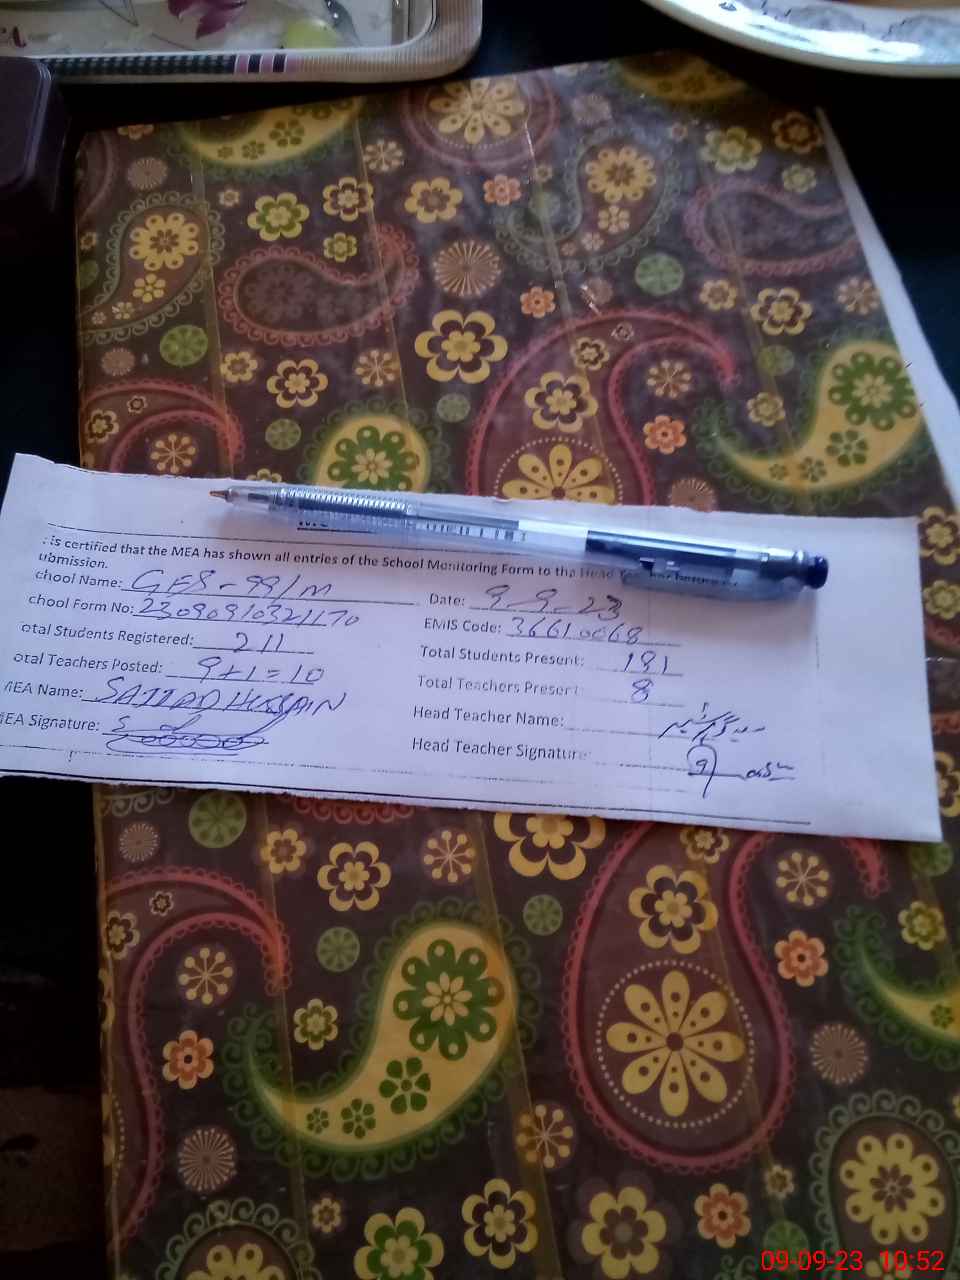 : is certified that the MEA has shown all entries of the School Monitoring Form to the Head
ubmission.
chool Name: GES-99/M Date: 9-9-23
chool Form No: EMIS Code: 36610068
otal Students Registered: 211 Total Students Present: 181
otal Teachers Posted: 9+1=10 Total Teachers Present: 8
MEA Name: SAJJAD HUSSAIN Head Teacher Name:
MEA Signature: Head Teacher Signature:
09-09-23 10:52